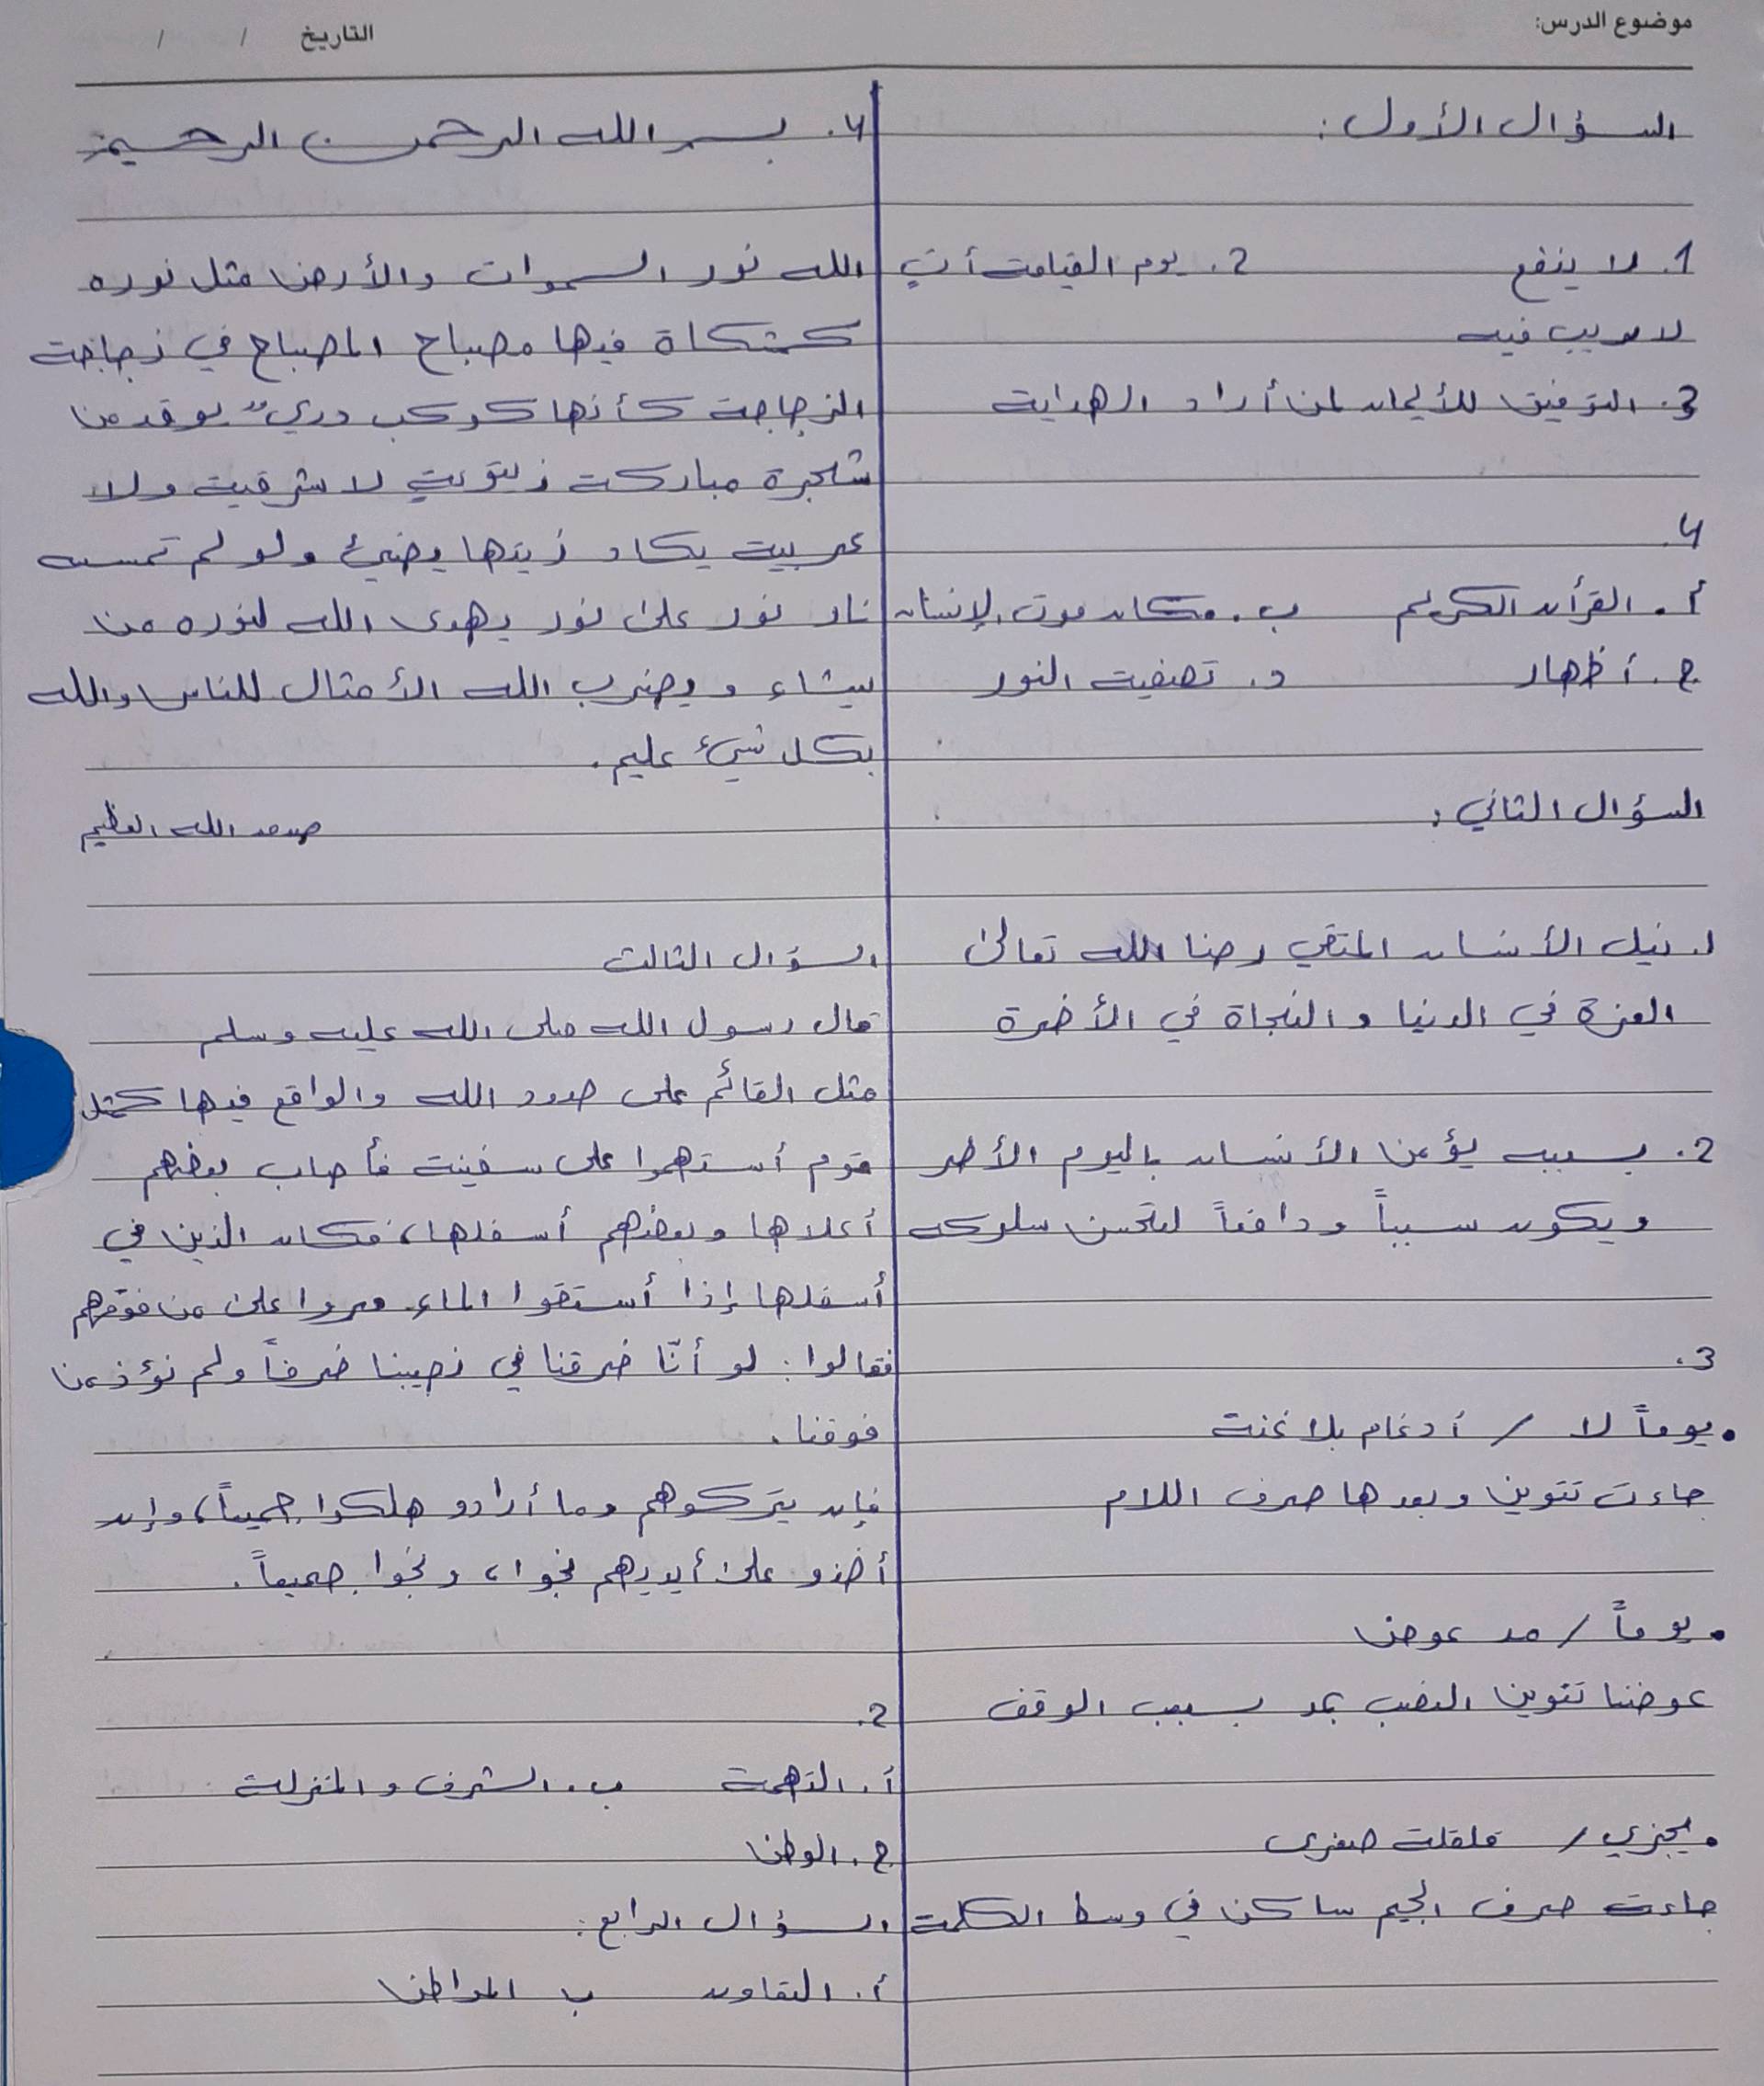 موضوع الدرس:
التاريخ / /
السؤال الأول:
1. لا ينفع 2. يوم القيامة أتٍ
لا ريب فيه
3. التوفيق للأيمان لمن أراد الهداية
4.
أ. القرأن الكريم ب. مكان موت الإنسان
ج. أظهار د. تصفية النور
السؤال الثاني:
1. نيل الأنسان المتقي رضا الله تعالى
العزة في الدنيا والنجاة في الأخرة
2. بسببه يؤمن الأنسان باليوم الأخر
ويكون سبباً ودافعاً لتحسن سلوكه
3.
• يوماً لا / أدغام بلا غنة
جاءت تنوين وبعدها حرف اللام
• يوماً / مد عوض
عوضنا تنوين النصب بمد بسبب الوقف
• يجزي / قلقلة صغرى
جاءت حرف الجيم ساكن في وسط الكلمة
4. بسم الله الرحمن الرحيم
الله نور السموات والأرض مثل نوره
كمشكاة فيها مصباح المصباح في زجاجة
الزجاجة كأنها كوكب دري يوقد من
شجرة مباركة زيتونةٍ لا شرقية ولا
غربية يكاد زيتها يضيئ ولو لم تمسسه
نار نور على نور يهدى الله لنوره من
يشاء ويضرب الله الأمثال للناس والله
بكل شيئ عليم.
صدق الله العظيم
السؤال الثالث
قال رسول الله صلى الله عليه وسلم
مثل القائم على حدود الله والواقع فيها كمثل
قوم أستهموا على سفينة فأصاب بعضهم
أعلاها وبعضهم أسفلها، فكان الذين في
أسفلها إذا أستقوا الماء مروا على من فوقهم
فقالوا: لو أنّا خرقنا في نصيبنا خرقاً ولم نؤذ من
فوقنا.
فإن يتركوهم وما أرادو هلكوا جميعاً، وإن
أخذو على أيديهم نجوا، ونجوا جميعاً.
2.
أ. التهمة ب. الشرف والمنزلة
ج. الوطن
السؤال الرابع:
أ. التعاون ب المواطن